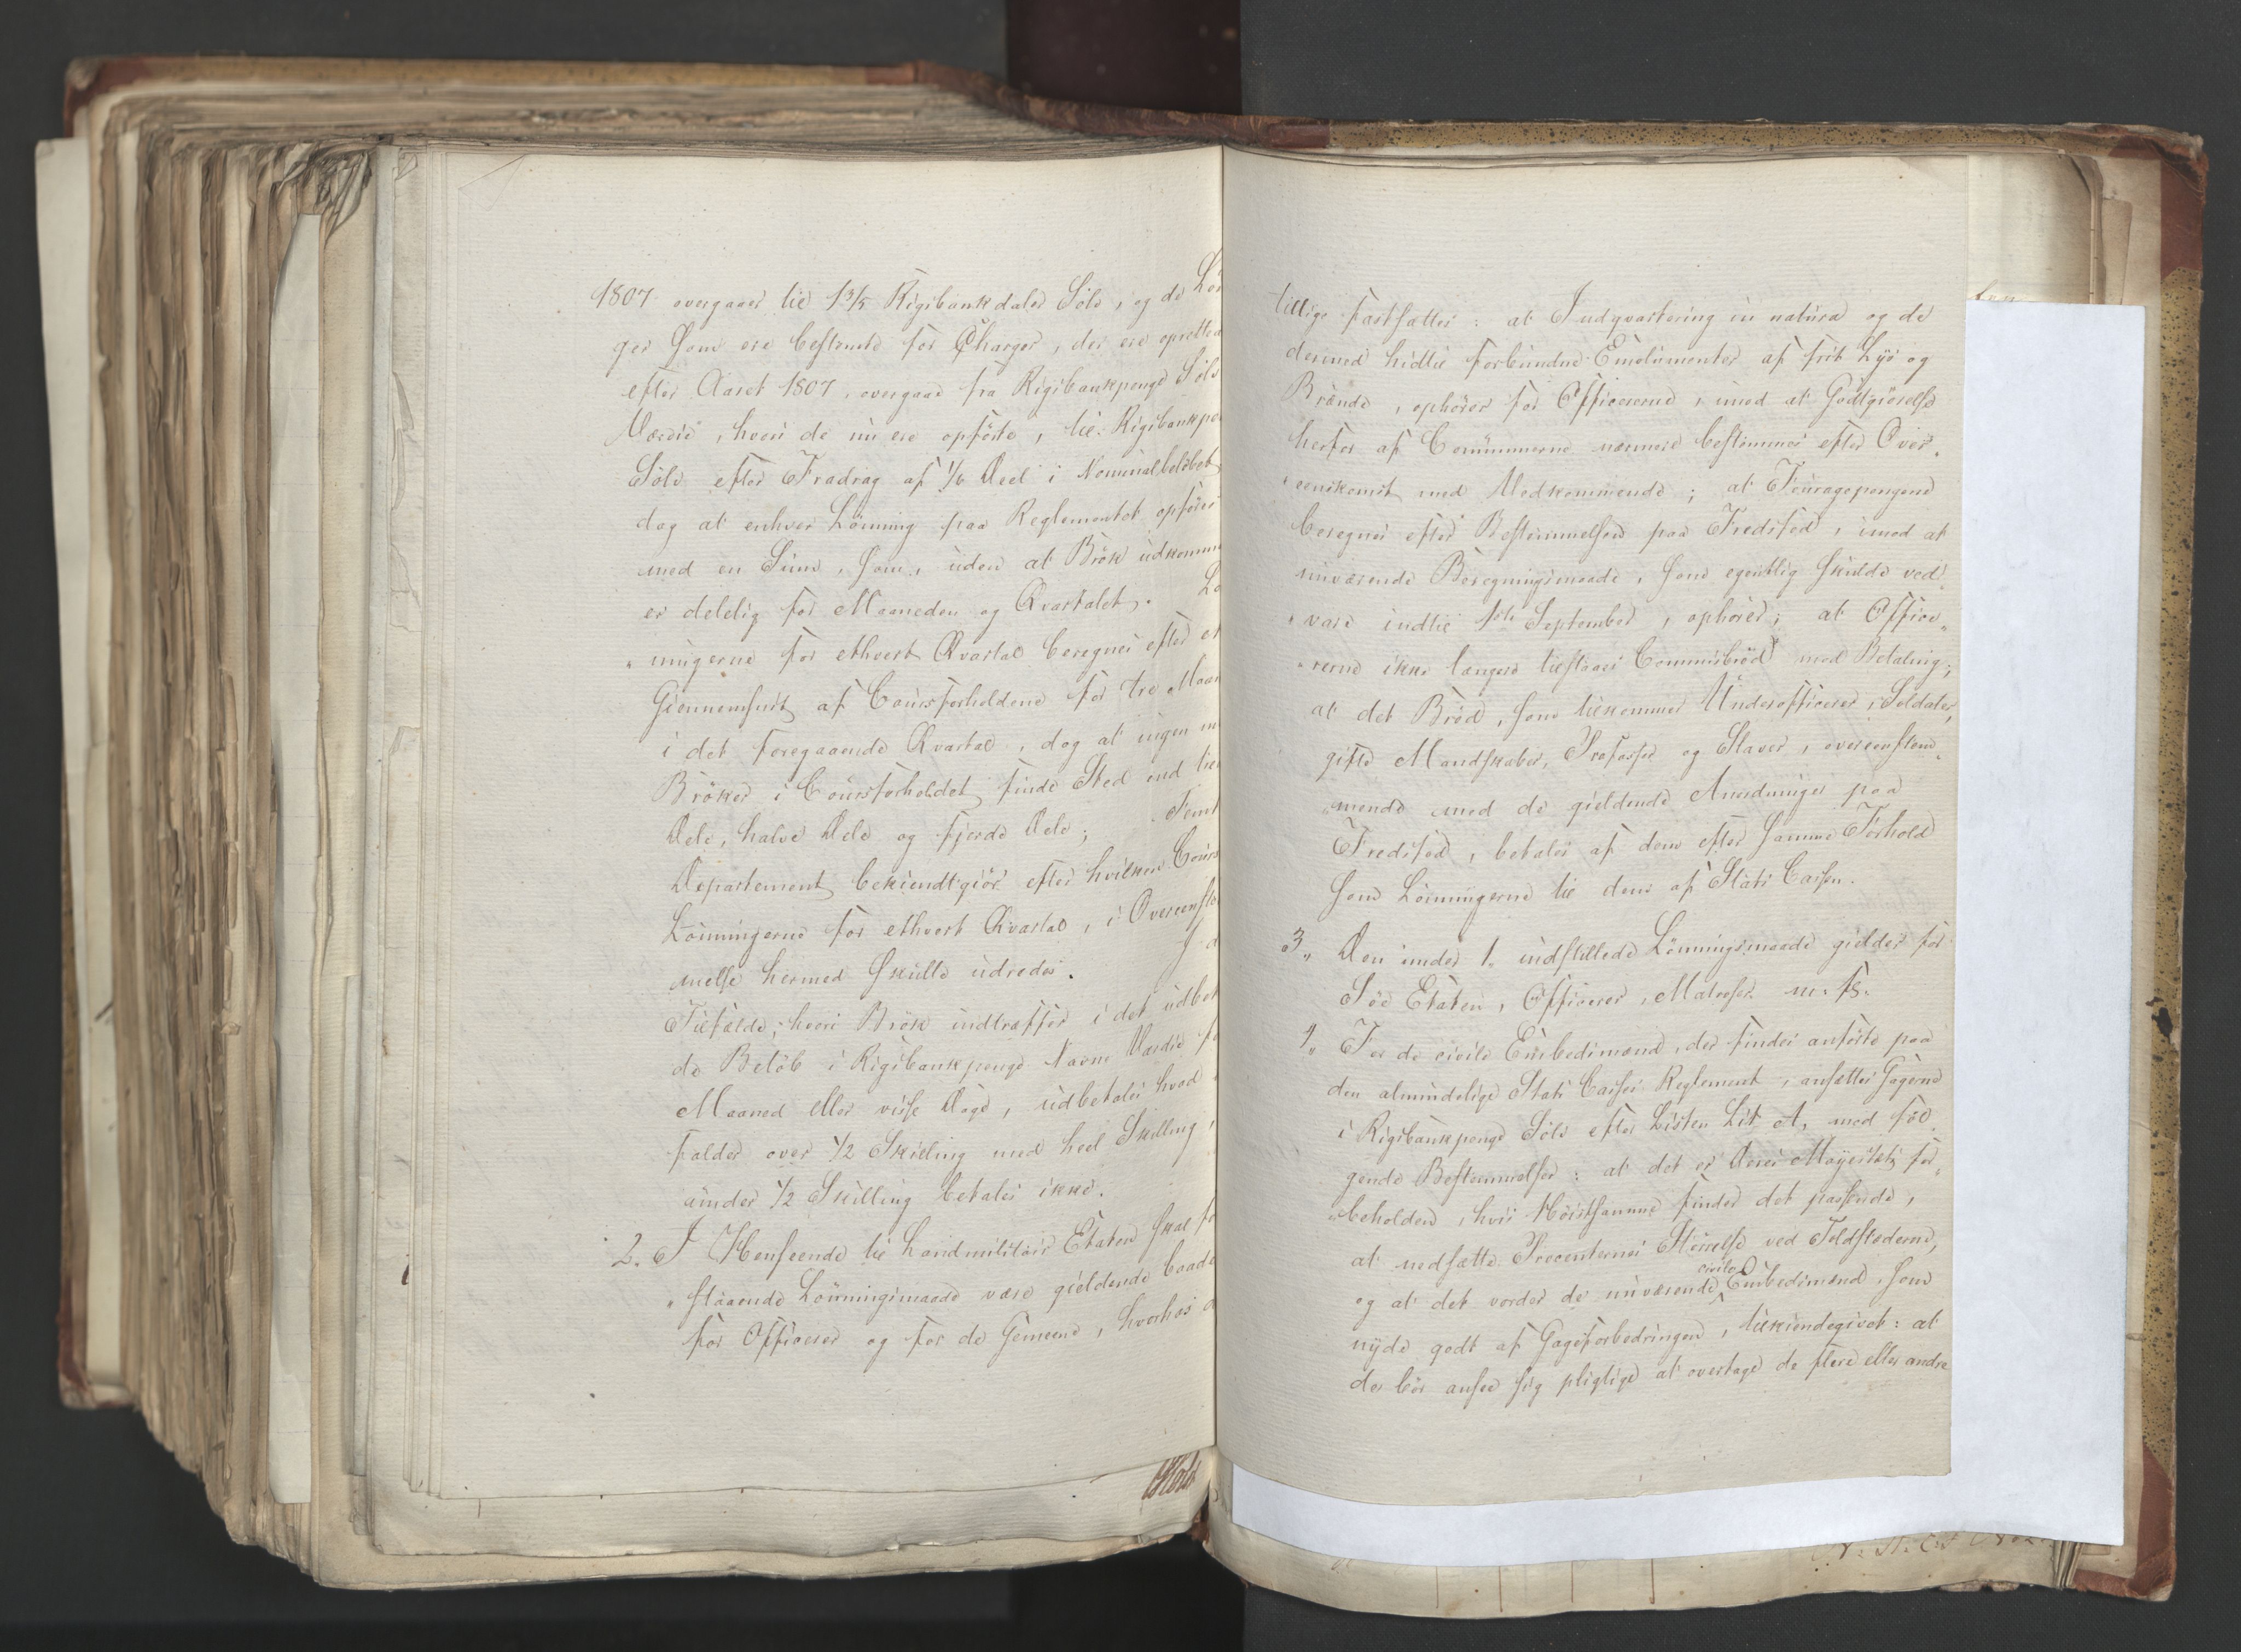 1807 overgaaer til 1 3/5 Rigsbankdaler Sölv, og de Lön
ger som ere bestemte for Charger, der ere oprettede
efter Aaret 1807, overgaae fra Rigsbankpenge Sölv
Værdie, hvori de nu ere opförte, til Rigsbankpe
Sölv efter Fradrag af 1/6 Deel i Nominalbelöbet
dog at enhver Lönning paa Reglementet opföres
med en Sum, som, uden at Brök udkomm
er delelig for Maaneden og Qvartalet. Lö
„ningerne for ethvert Qvartal beregnes efter et
Giennemsnit af Coursforholdene for tre Maan
i det foregaaende Qvartal, dog at ingen m
Bröker i Coursforholdet finde Sted end ti
Dele, halve Dele og fjerde Dele;
Departement bekiendtgiör efter hvilken Cours
Lönningerne for ethvert Qvartal, i Overeenste
melse hermed skulle udredes. I d
Tilfælde, hvori Brök indtræffer i det udbet
de Belöb i Rigsbankpenge Navne Værdie fo
Maaned eller visse Dage, udbetales hvad
falder over 1/2 Skilling med heel Skilling,
under 1/2 Skilling betales ikke.
2. I Henseende til Landmilitair Etaten skal fo
„staaende Lönningsmaade være gieldende baade
for Officerer og for de Gemeene, hvorhos d
tillige fastsættes: at Indqvartering in natura og de
dermed hidtil forbundne Emolumenter af frit Lys og
Brænde, ophörer for Officererne, imod at Godtgiörelse
herfor af Communerne nærmere bestemmes efter Over„
„eenskomst med Vedkommende; at Fouragepengene
beregnes efter Bestemmelsen paa Fredsfod, imod at
nuværende Beregningsmaade, som egentlig skulde ved„
„vare indtil 1ste September, ophörer; at Offise„
„rerne ikke længere tilstaaes Commisbröd mod Betaling;
at det Bröd, som tilkommer Underofficerer, Soldater,
gifte Mandskaber, Profosser og Slaver, overeenstem„
„mende med de gieldende Anordninger paa
Fredsfod, betales af dem efter samme Forhold
som Lönningerne til dem af Stats Cassen.
3„ Den under 1. indstillede Lönningsmaade gielder for
Söe Etaten, Officerer, Matroser m. fl.
4„ For de civile Embedsmænd, der findes anförte paa
den almindelige Stats Casses Reglement, ansættes Gagerne
i Rigsbankpenge Sölv efter Listen Lit A, med föl„
gende Bestemmelser: at det er Deres Majestæt for„
„beholden, hvis Höistsamme finder det passende,
at nedsætte Procenternes Störrelse ved Toldstederne,
og at det vorder de nuværende civile Embedsmænd, som
nyde godt af Gageforbedringen, tilkiendegivet: at
de bör ansee sig pligtige at overtage de flere eller andre